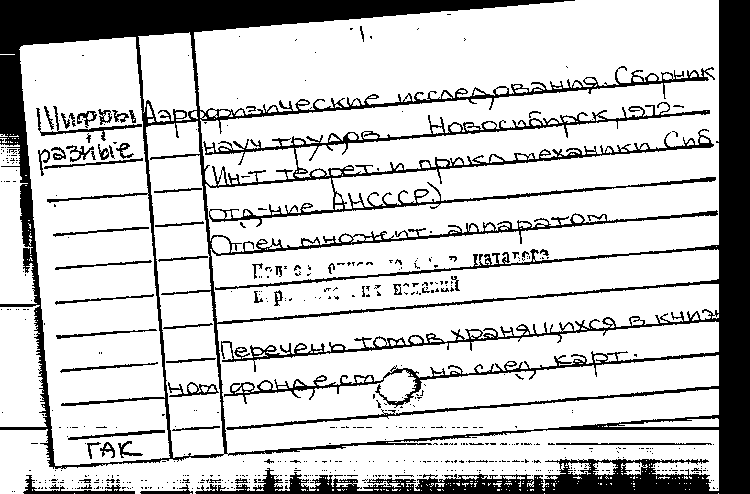 1.
Шифры Аэрофизические исследования. Сборник
разные науч. трудов. Новосибирск, 1972-
(Ин-т теорет. и прикл. механики Сиб.
отд-ние АНСССР)
Отпеч. множит. аппаратом
каталога
изданий
Перечень томов, хранящихся в книж
ном фонде, см. на след. карт.
ГАК